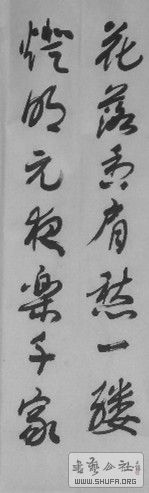 花落香肩愁一缕
燈明元夜樂千家
書藝公社
WWW.SHUFA.ORG